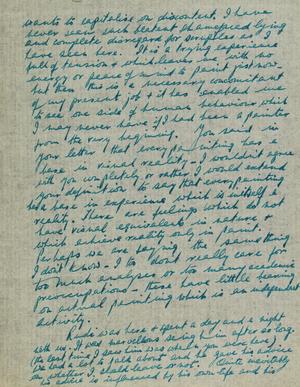 wants to capitalise on discontent. I have
never seen such blatent shamefaced lying
and complete disregard for scruples as I
have seen here. It is a trying experience
full of tension & which leaves me with no
energy or peace of mind to paint just now.
but then this is a necessary concomitant
of my present job & it has enabled me
to see one side of human behaviour which
I may never have if I had been a painter
from the very beginning. You said in
your letter that every painting has a
base in visual reality – I wouldn't agree
with you completely or rather I would extend
your definition to say that every painting
has a base in experience which is itself a
reality. There are feelings which do not
have visual equivalents in nature &
which achieve reality only in paint.
Perhaps we are saying the same thing
I don't know – I don't really care for
too much analyses or too many academic
preoccupations – these have little bearing
on actual painting which is an independent
activity.
was here & spent a day and a night
with us. It was marvellous seeing him after so long.
the last time I saw him was when you were here.
We had a lot to talk about and he gave his advice
on whether I should leave or not. Quite inevitably
his advice is influenced by his own life and his